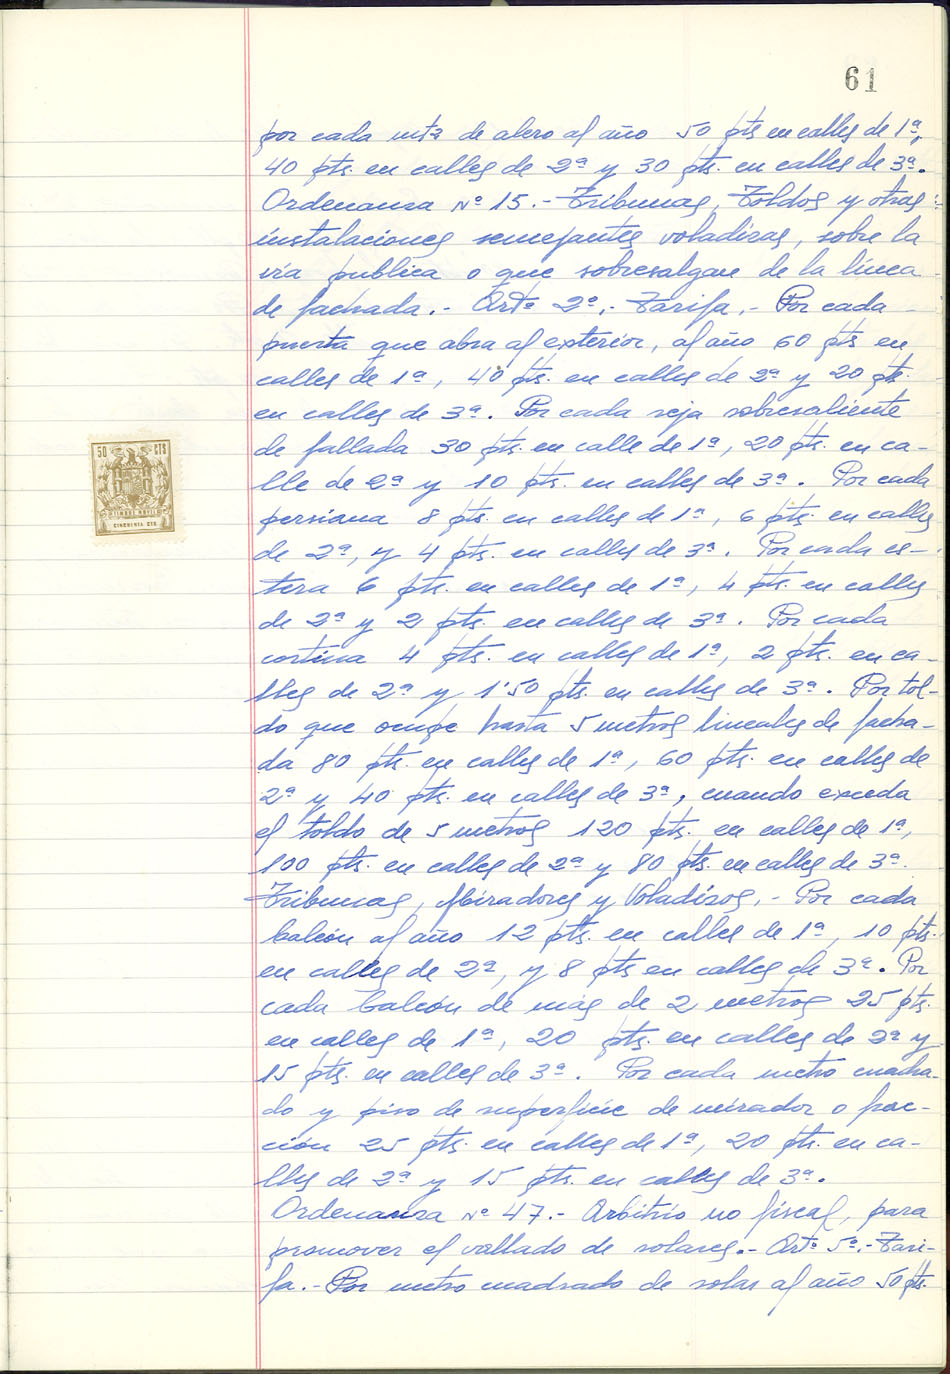 61
por cada mts de alero al año 50 pts en calles de 1ª,
40 pts. en calles de 2ª y 30 pts. en calles de 3ª.
Ordenanza Nº 15.- Tribunas, Toldos y otras
instalaciones semejantes voladizas, sobre la
vía publica o que sobresalgan de la línea
de fachada.- Artº 2º.- Tarifa.- Por cada
puerta que abra al exterior, al año 60 pts en
calles de 1ª, 40 pts. en calles de 2ª y 20 pts.
en calles de 3ª. Por cada reja sobresaliente
de fallada 30 pts. en calle de 1ª, 20 pts. en ca-
lle de 2ª y 10 pts. en calles de 3ª. Por cada
persiana 8 pts. en calles de 1ª, 6 pts. en calles
de 2ª, y 4 pts. en calles de 3ª. Por cada es-
tera 6 pts. en calles de 1ª, 4 pts. en calles
de 2ª y 2 pts. en calles de 3ª. Por cada
cortina 4 pts. en calles de 1ª, 2 pts. en ca-
lles de 2ª y 1'50 pts. en calles de 3ª. Por tol-
do que ocupe hasta 5 metros lineales de facha-
da 80 pts. en calles de 1ª, 60 pts. en calles de
2ª y 40 pts. en calles de 3ª, cuando exceda
el toldo de 5 metros 120 pts. en calles de 1ª,
100 pts. en calles de 2ª y 80 pts. en calles de 3ª.
Tribunas, Miradores y Voladizos.- Por cada
balcón al año 12 pts. en calles de 1ª, 10 pts.
en calles de 2ª, y 8 pts en calles de 3ª. Por
cada balcón de más de 2 metros 25 pts.
en calles de 1ª, 20 pts. en calles de 2ª y
15 pts. en calles de 3ª. Por cada metro cuadra-
do y piso de superficie de mirador o frac-
ción 25 pts. en calles de 1ª, 20 pts. en ca-
lles de 2ª y 15 pts. en calles de 3ª.
Ordenanza Nº 47.- Arbitrio no fiscal, para
promover el vallado de solares.- Artº 5º.- Tari-
fa.- Por metro cuadrado de solar al año 50 pts.
50 CTS
TIMBRE MOVIL
CINCUENTA CTS